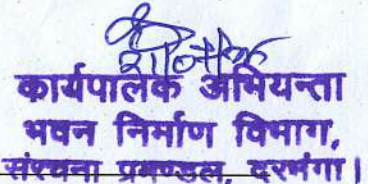 कार्यपालक अभियन्ता
भवन निर्माण विभाग,
संरचना प्रमण्डल, दरभंगा।